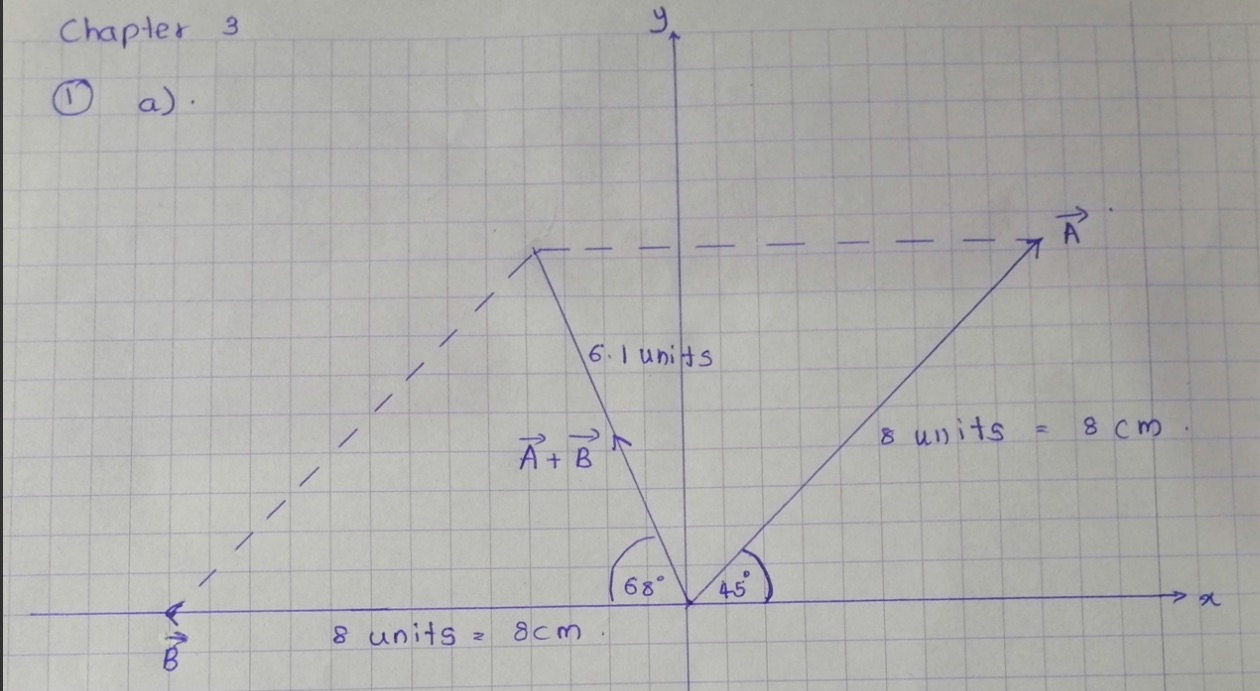 Chapter 3
y
① a).
A
6.1 units
8 units = 8 cm.
A + B
68°
45°
x
8 units = 8cm.
B